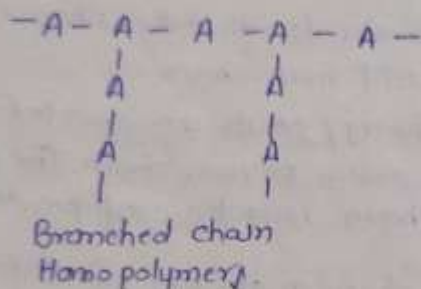 — A — A — A — A — A —
| |
A A
| |
A A
| |
Branched chain
Homopolymers.